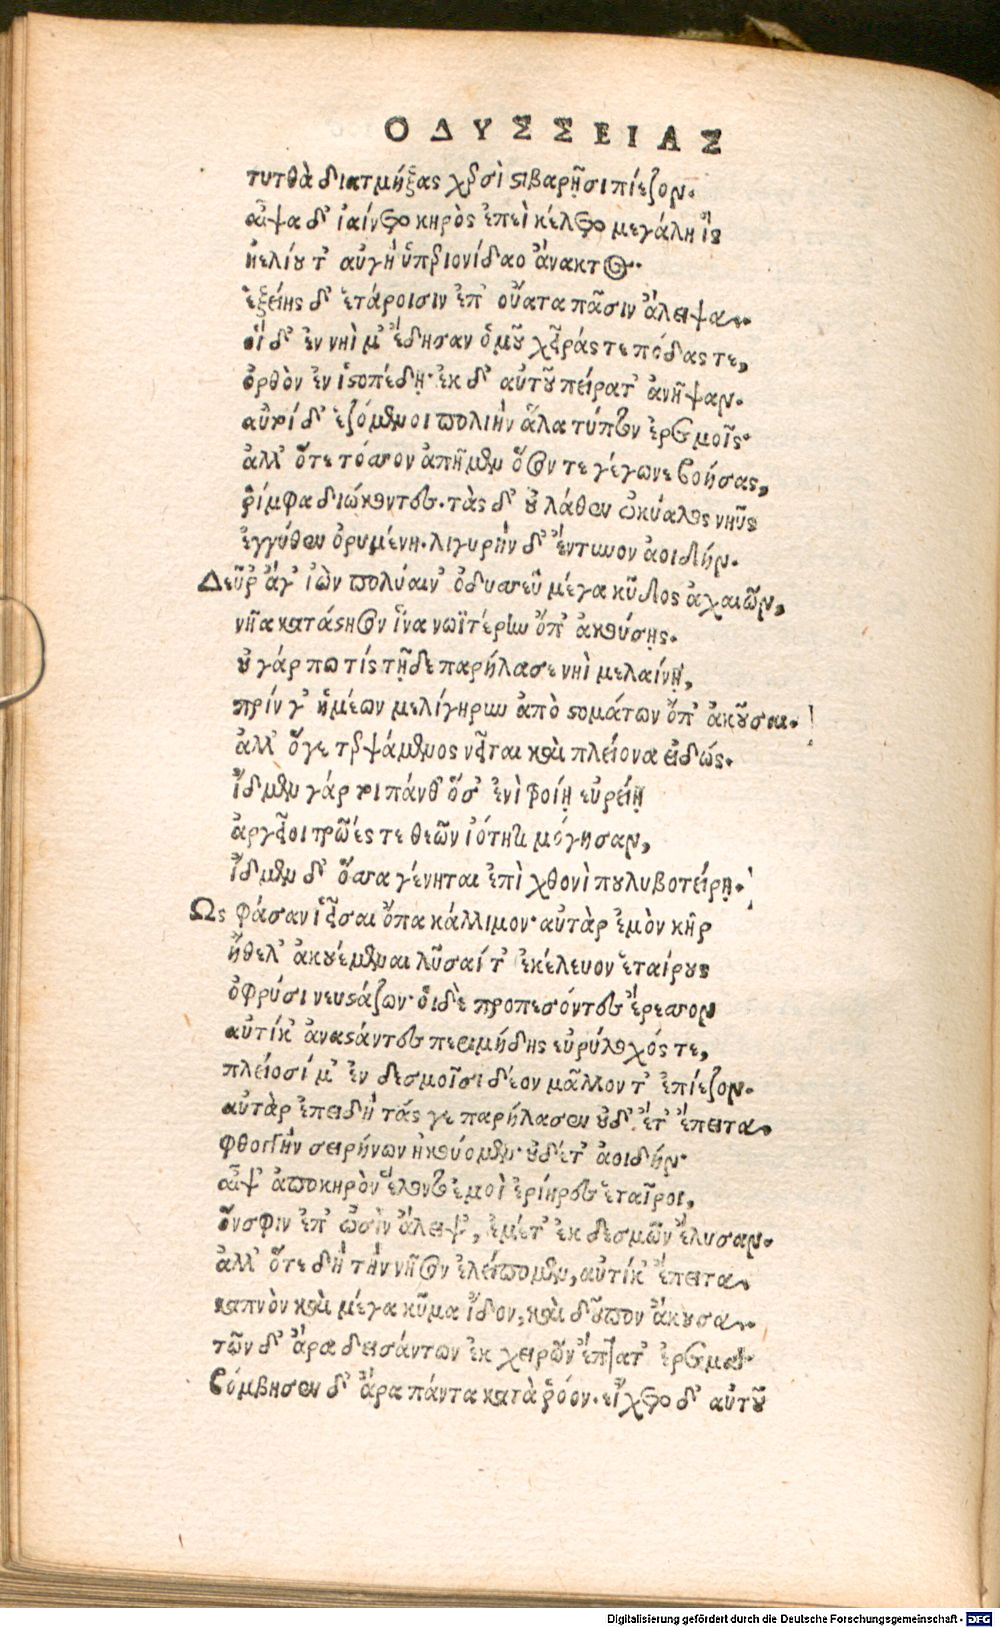 ΟΔΥΣΣΕΙΑΣ
τυτθὰ διατμήξας χερσὶ στιβαρῇσι πίεζον.
αἶψα δ' ἰαίνετο κηρὸς ἐπεὶ κέλετο μεγάλη ἲς
ἠελίου τ' αὐγὴ ὑπεριονίδαο ἄνακτος.
ἑξείης δ' ἑτάροισιν ἐπ' οὔατα πᾶσιν ἄλειψα.
οἱ δ' ἐν νηὶ μ' ἔδησαν ὁμοῦ χεῖράς τε πόδας τε,
ὀρθὸν ἐν ἱστοπέδῃ· ἐκ δ' αὐτοῦ πείρατ' ἀνῆψαν.
αὐτοὶ δ' ἑζόμενοι πολιὴν ἅλα τύπτον ἐρετμοῖς·
ἀλλ' ὅτε τόσσον ἀπῆμεν ὅσον τε γέγωνε βοήσας,
ῥίμφα διώκοντες. τὰς δ' οὐ λάθεν ὠκύαλος νηῦς
ἐγγύθεν ὀρυμένη. λιγυρὴν δ' ἔντυνον ἀοιδήν.
Δεῦρ' ἄγ' ἰὼν πολύαιν' ὀδυσσεῦ μέγα κῦδος ἀχαιῶν,
νῆα κατάστησον ἵνα νωϊτέρην ὄπ' ἀκούσῃς.
οὐ γάρ πω τίς τῇδε παρήλασε νηὶ μελαίνῃ,
πρίν γ' ἡμέων μελίγηρυν ἀπὸ στομάτων ὄπ' ἀκοῦσαι.
ἀλλ' ὅγε τερψάμενος νεῖται καὶ πλείονα εἰδώς.
ἴδμεν γάρ τοι πάνθ' ὅσ' ἐνὶ τροίῃ εὐρείῃ
ἀργεῖοι τρῶές τε θεῶν ἰότητι μόγησαν,
ἴδμεν δ' ὅσσα γένηται ἐπὶ χθονὶ πουλυβοτείρῃ.
Ὣς φάσαν ἱεῖσαι ὄπα κάλλιμον· αὐτὰρ ἐμὸν κῆρ
ἤθελ' ἀκουέμεναι λῦσαί τ' ἐκέλευον ἑταίρους
ὀφρύσι νευστάζων· οἱ δὲ προπεσόντες ἔρεσσον
αὐτίκ' ἀναστάντες περιμήδης εὐρύλοχός τε,
πλείοσί μ' ἐν δεσμοῖσι δέον μᾶλλόν τ' ἐπίεζον.
αὐτὰρ ἐπειδὴ τάς γε παρήλασεν οὐδ' ἔτ' ἔπειτα
φθογγὴν σειρήνων ἠκούομεν· οὐδέτ' ἀοιδήν·
αἶψ' ἀπὸ κηρὸν ἕλοντο ἐμοὶ ἐρίηρες ἑταῖροι,
ὅνσφιν ἐπ' ὠσὶν ἄλειψ', ἐμέ τ' ἐκ δεσμῶν ἔλυσαν.
ἀλλ' ὅτε δὴ τὴν νῆσον ἐλείπομεν, αὐτίκ' ἔπειτα
καπνὸν καὶ μέγα κῦμα ἴδον, καὶ δοῦπον ἄκουσα.
τῶν δ' ἄρα δεισάντων ἐκ χειρῶν ἔπτατ' ἐρετμά·
βόμβησεν δ' ἄρα πάντα κατὰ ῥόον. εἴχετο δ' αὐτοῦ
Digitalisierung gefördert durch die Deutsche Forschungsgemeinschaft - DFG